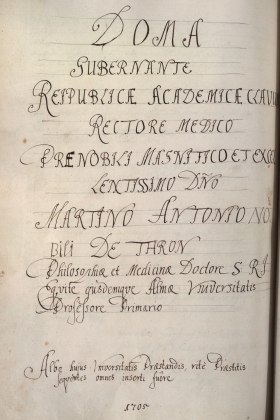 DOMA
GUBERNANTE
REIPUBLICÆ ACADEMICÆ CLAVUM
RECTORE MEDICO
PRÆNOBILI MAGNIFICO ET EXCEL
LENTISSIMO DNO
MARTINO ANTONIO NO
bili DE THRON
Philosophiæ et Medicinæ Doctore S R I
Equite eiusdemque Almæ Vniversitatis
Professore Primario
Albo hujus Vniversitatis Præstandis, ritè Præstitis
sequentes omnes inserti fuêre
1705